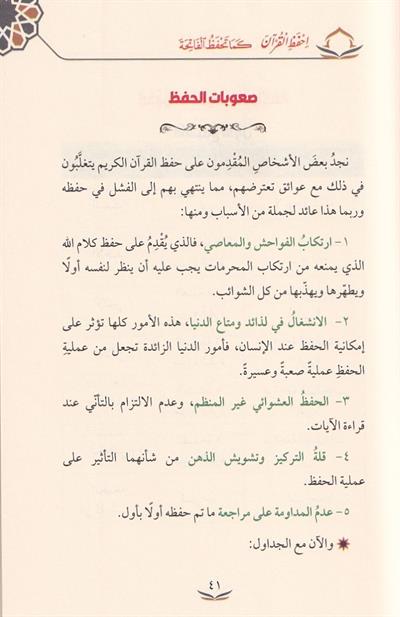 احْفَظِ القُرْآنَ كَمَا تَحْفَظُ الفَاتِحَةَ
صعوبات الحفظ
نجدُ بعضَ الأشخاصِ المُقْدِمون على حفظ القرآن الكريم يتغلَّبُون
في ذلك مع عوائق تعترضهم، مما ينتهي بهم إلى الفشل في حفظه
وربما هذا عائد لجملة من الأسباب ومنها:
١- ارتكابُ الفواحش والمعاصي، فالذي يُقْدِمُ على حفظ كلام الله
الذي يمنعه من ارتكاب المحرمات يجب عليه أن ينظر لنفسه أولًا
ويطهّرها ويهذّبها من كل الشوائب.
٢- الانشغالُ في لذائد ومتاع الدنيا، هذه الأمور كلها تؤثر على
إمكانية الحفظ عند الإنسان، فأمور الدنيا الزائدة تجعل من عمليةِ
الحفظِ عمليةً صعبةً وعسيرةً.
٣- الحفظُ العشوائي غير المنظم، وعدم الالتزام بالتأنّي عند
قراءة الآيات.
٤- قلةُ التركيز وتشويش الذهن من شأنهما التأثير على
عملية الحفظ.
٥- عدمُ المداومة على مراجعة ما تم حفظه أولًا بأول.
والآن مع الجداول:
٤١